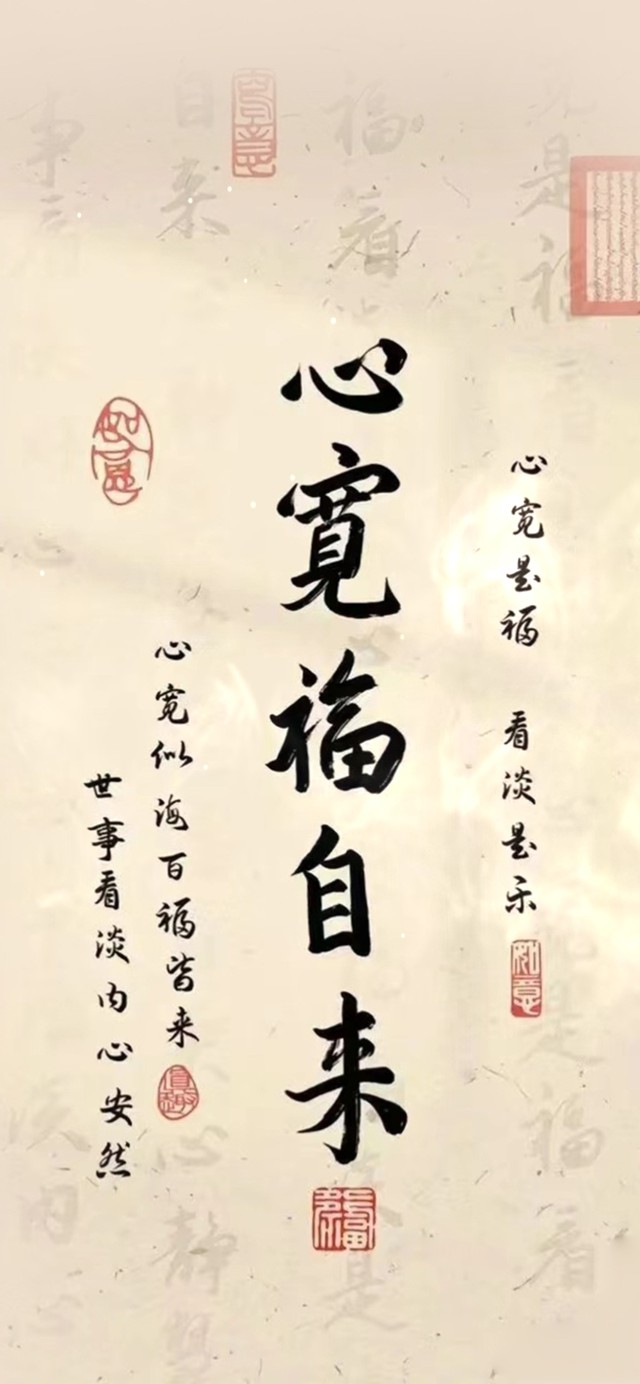 心宽是福 看淡是乐
如意
心寬福自来
福
心宽似海百福皆来
世事看淡内心安然
如意